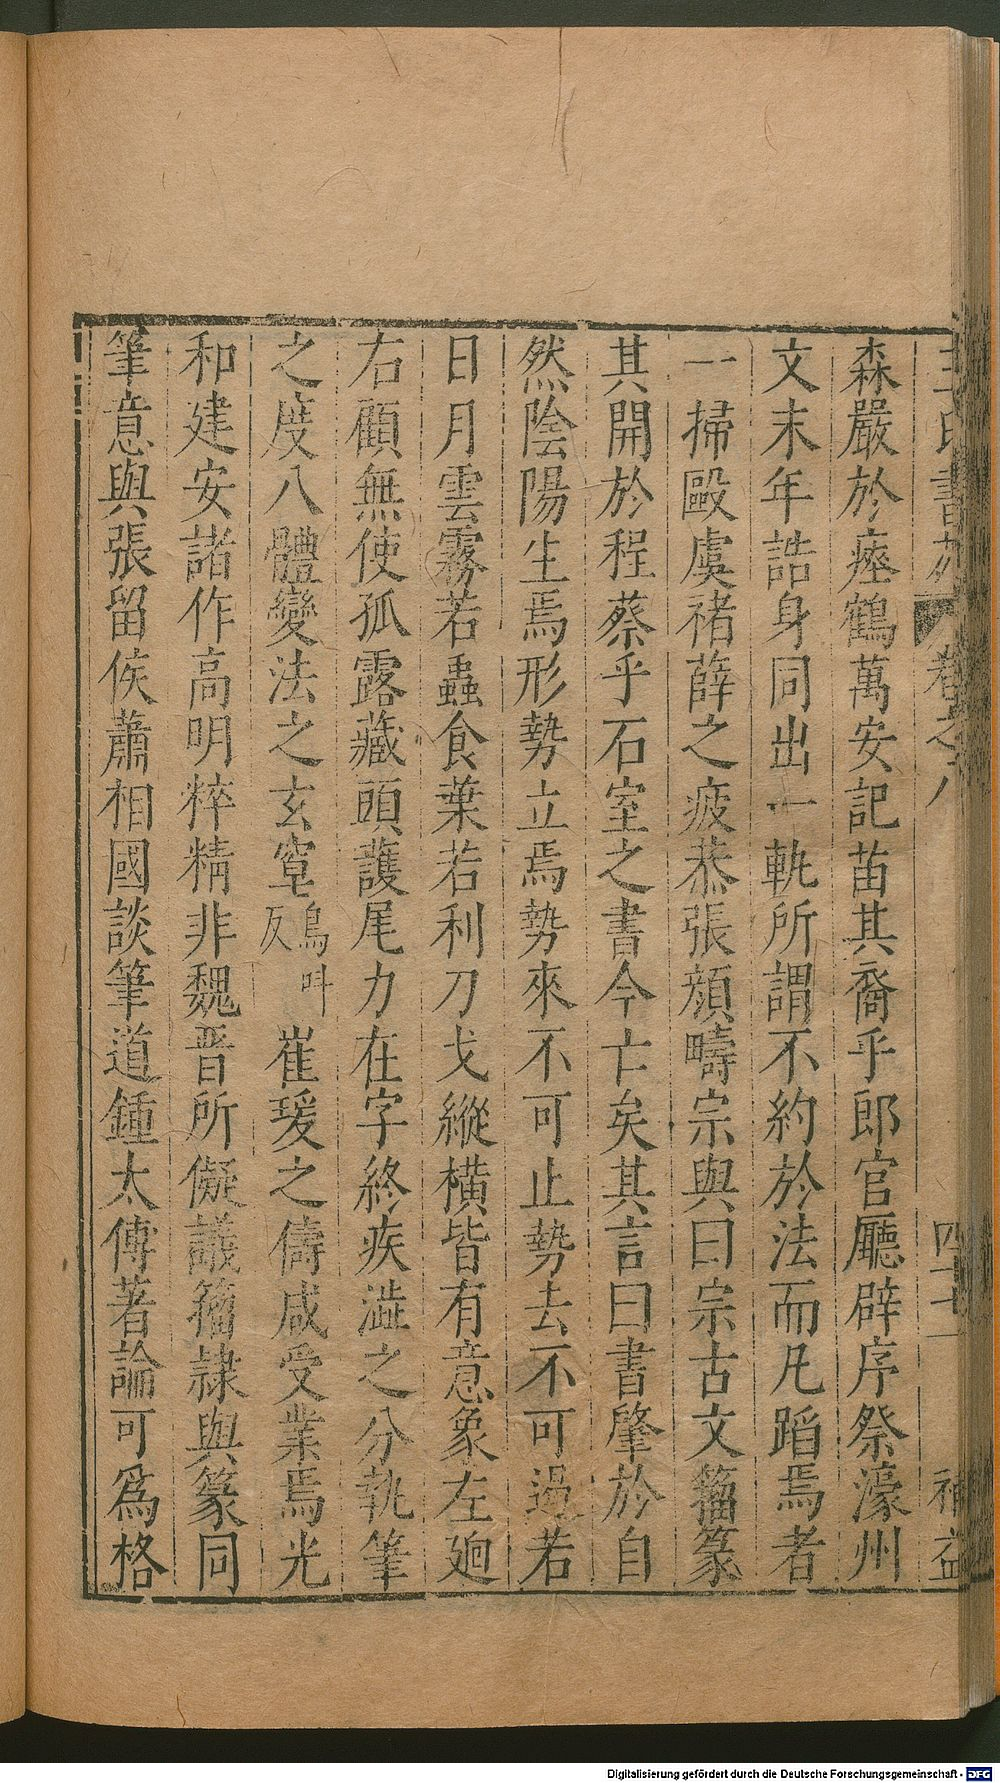 王氏書苑 卷之八 四十七 補益
森嚴於瘞鶴萬安記苗其裔乎郎官廳辟序祭濠州
文末年誥身同出一軌所謂不約於法而凡蹈焉者
一掃毆虞禇薛之疲苶張顔疇宗與曰宗古文籀篆
其開於程蔡乎石室之書今亡矣其言曰書肇於自
然陰陽生焉形勢立焉勢來不可止勢去不可遏若
日月雲霧若蟲食葉若利刀戈縱橫皆有意象左廻
右顧無使孤露藏頭護尾力在字終疾澁之分執筆
之度八體變法之玄窔烏呌反崔瑗之儔咸受業焉光
和建安諸作高明粹精非魏晋所儗議籀隷與篆同
筆意與張留侯蕭相國談筆道鍾太傅著論可爲格
Digitalisierung gefördert durch die Deutsche Forschungsgemeinschaft - DFG